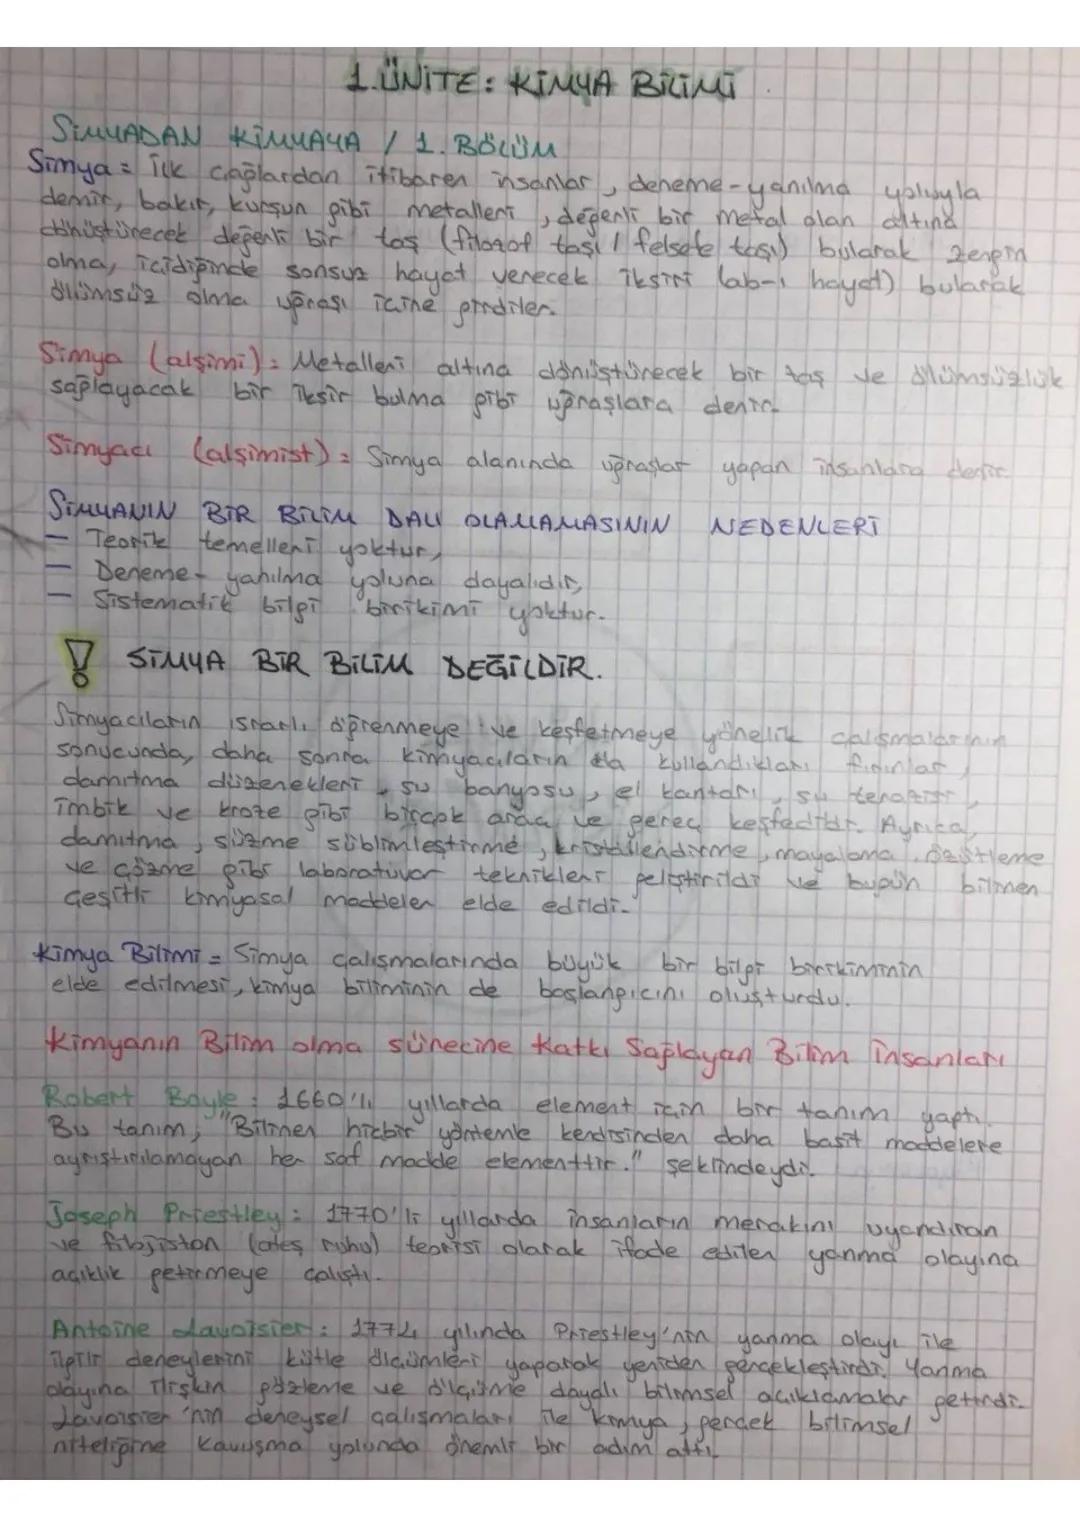 1.ÜNİTE: KİMYA BİLİMİ
SİMYADAN KİMYAYA / 1. BÖLÜM
Simya = İlk çağlardan itibaren insanlar, deneme-yanılma yoluyla
demir, bakır, kurşun gibi metalleri, değerli bir metal olan altına
dönüştürecek değerli bir taş (filozof taşı / felsefe taşı) bularak zengin
olma, içildiğinde sonsuz hayat verecek iksiri (ab-ı hayat) bularak
ölümsüz olma uğraşı içine girdiler.
Simya (alşimi) = Metalleri altına dönüştürecek bir taş ve ölümsüzlük
sağlayacak bir iksir bulma gibi uğraşlara denir.
Simyacı (alşimist) = Simya alanında uğraşlar yapan insanlara denir.
SİMYANIN BİR BİLİM DALI OLAMAMASININ NEDENLERİ
- Teorik temelleri yoktur,
- Deneme-yanılma yoluna dayalıdır,
- Sistematik bilgi birikimi yoktur.
! SİMYA BİR BİLİM DEĞİLDİR.
Simyacıların ısrarlı öğrenmeye ve keşfetmeye yönelik çalışmalarının
sonucunda, daha sonra kimyacıların da kullandıkları fırınlar,
damıtma düzenekleri, su banyosu, el kantarı, su terazisi,
imbik ve kroze gibi birçok araç ve gereç keşfedildi. Ayrıca,
damıtma, süzme süblimleştirme, kristallendirme, mayalama, özütleme
ve çözme gibi laboratuvar teknikleri geliştirildi ve bugün bilinen
çeşitli kimyasal maddeler elde edildi.
Kimya Bilimi = Simya çalışmalarında büyük bir bilgi birikiminin
elde edilmesi, kimya biliminin de başlangıcını oluşturdu.
Kimyanın Bilim olma sürecine Katkı Sağlayan Bilim İnsanları
Robert Boyle : 1660'lı yıllarda element için bir tanım yaptı.
Bu tanım; "Bilinen hiçbir yöntemle kendisinden daha basit maddelere
ayrıştırılamayan her saf madde elementtir." şeklindeydi.
Joseph Priestley : 1770'li yıllarda insanların merakını uyandıran
ve filojiston (ateş ruhu) teorisi olarak ifade edilen yanma olayına
açıklık getirmeye çalıştı.
Antoine Lavoisier : 1774 yılında Priestley'nin yanma olayı ile
ilgili deneylerini kütle ölçümleri yaparak yeniden gerçekleştirdi. Yanma
olayına ilişkin gözleme ve ölçüme dayalı bilimsel açıklamalar getirdi.
Lavoisier'nin deneysel çalışmaları ile kimya, gerçek bilimsel
niteliğine kavuşma yolunda önemli bir adım attı.